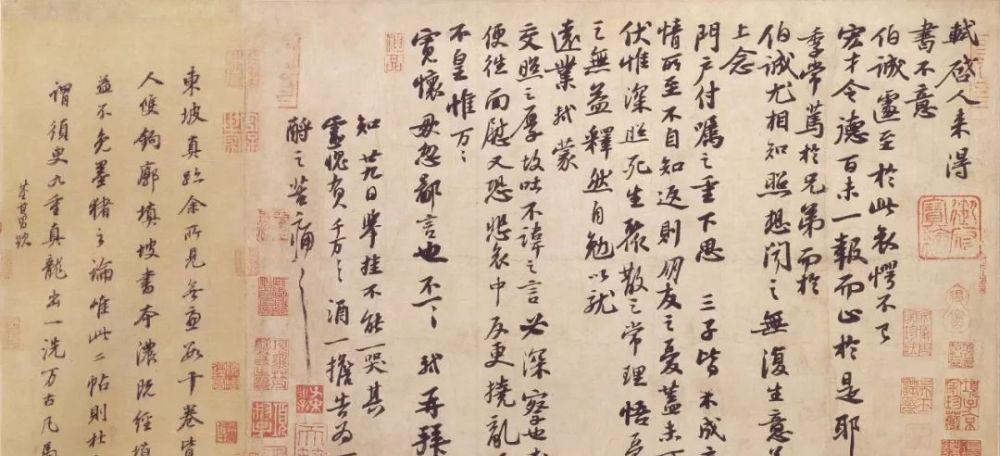 軾啓人来得
書不意
伯誠遽至於此哀愕不已
宏才令德百未一報而止於是耶
季常篤於兄弟而於
伯誠尤相知照想聞之無復生意
上念
門户付囑之重下思 三子皆未成
情所至不自知返則朋友之憂蓋未可
伏惟深照死生聚散之常理悟憂
之無益釋然自勉以就
遠業軾蒙
交照之厚故吐不諱之言必深察也本
便往面慰又恐悲哀中反更撓亂
不皇惟万〻
寬懷毋忽鄙言也不一〻 軾再拜
知廿九日舉挂不能一哭其
靈愧負千万〻 酒一擔告為一
酹之苦痛〻
東坡真跡余所見無慮數十卷皆
人雙鉤廓填坡書本濃既經填
益不免墨猪之論惟此二帖則杜
謂須臾九重真龍出一洗万古凡馬
董其昌跋